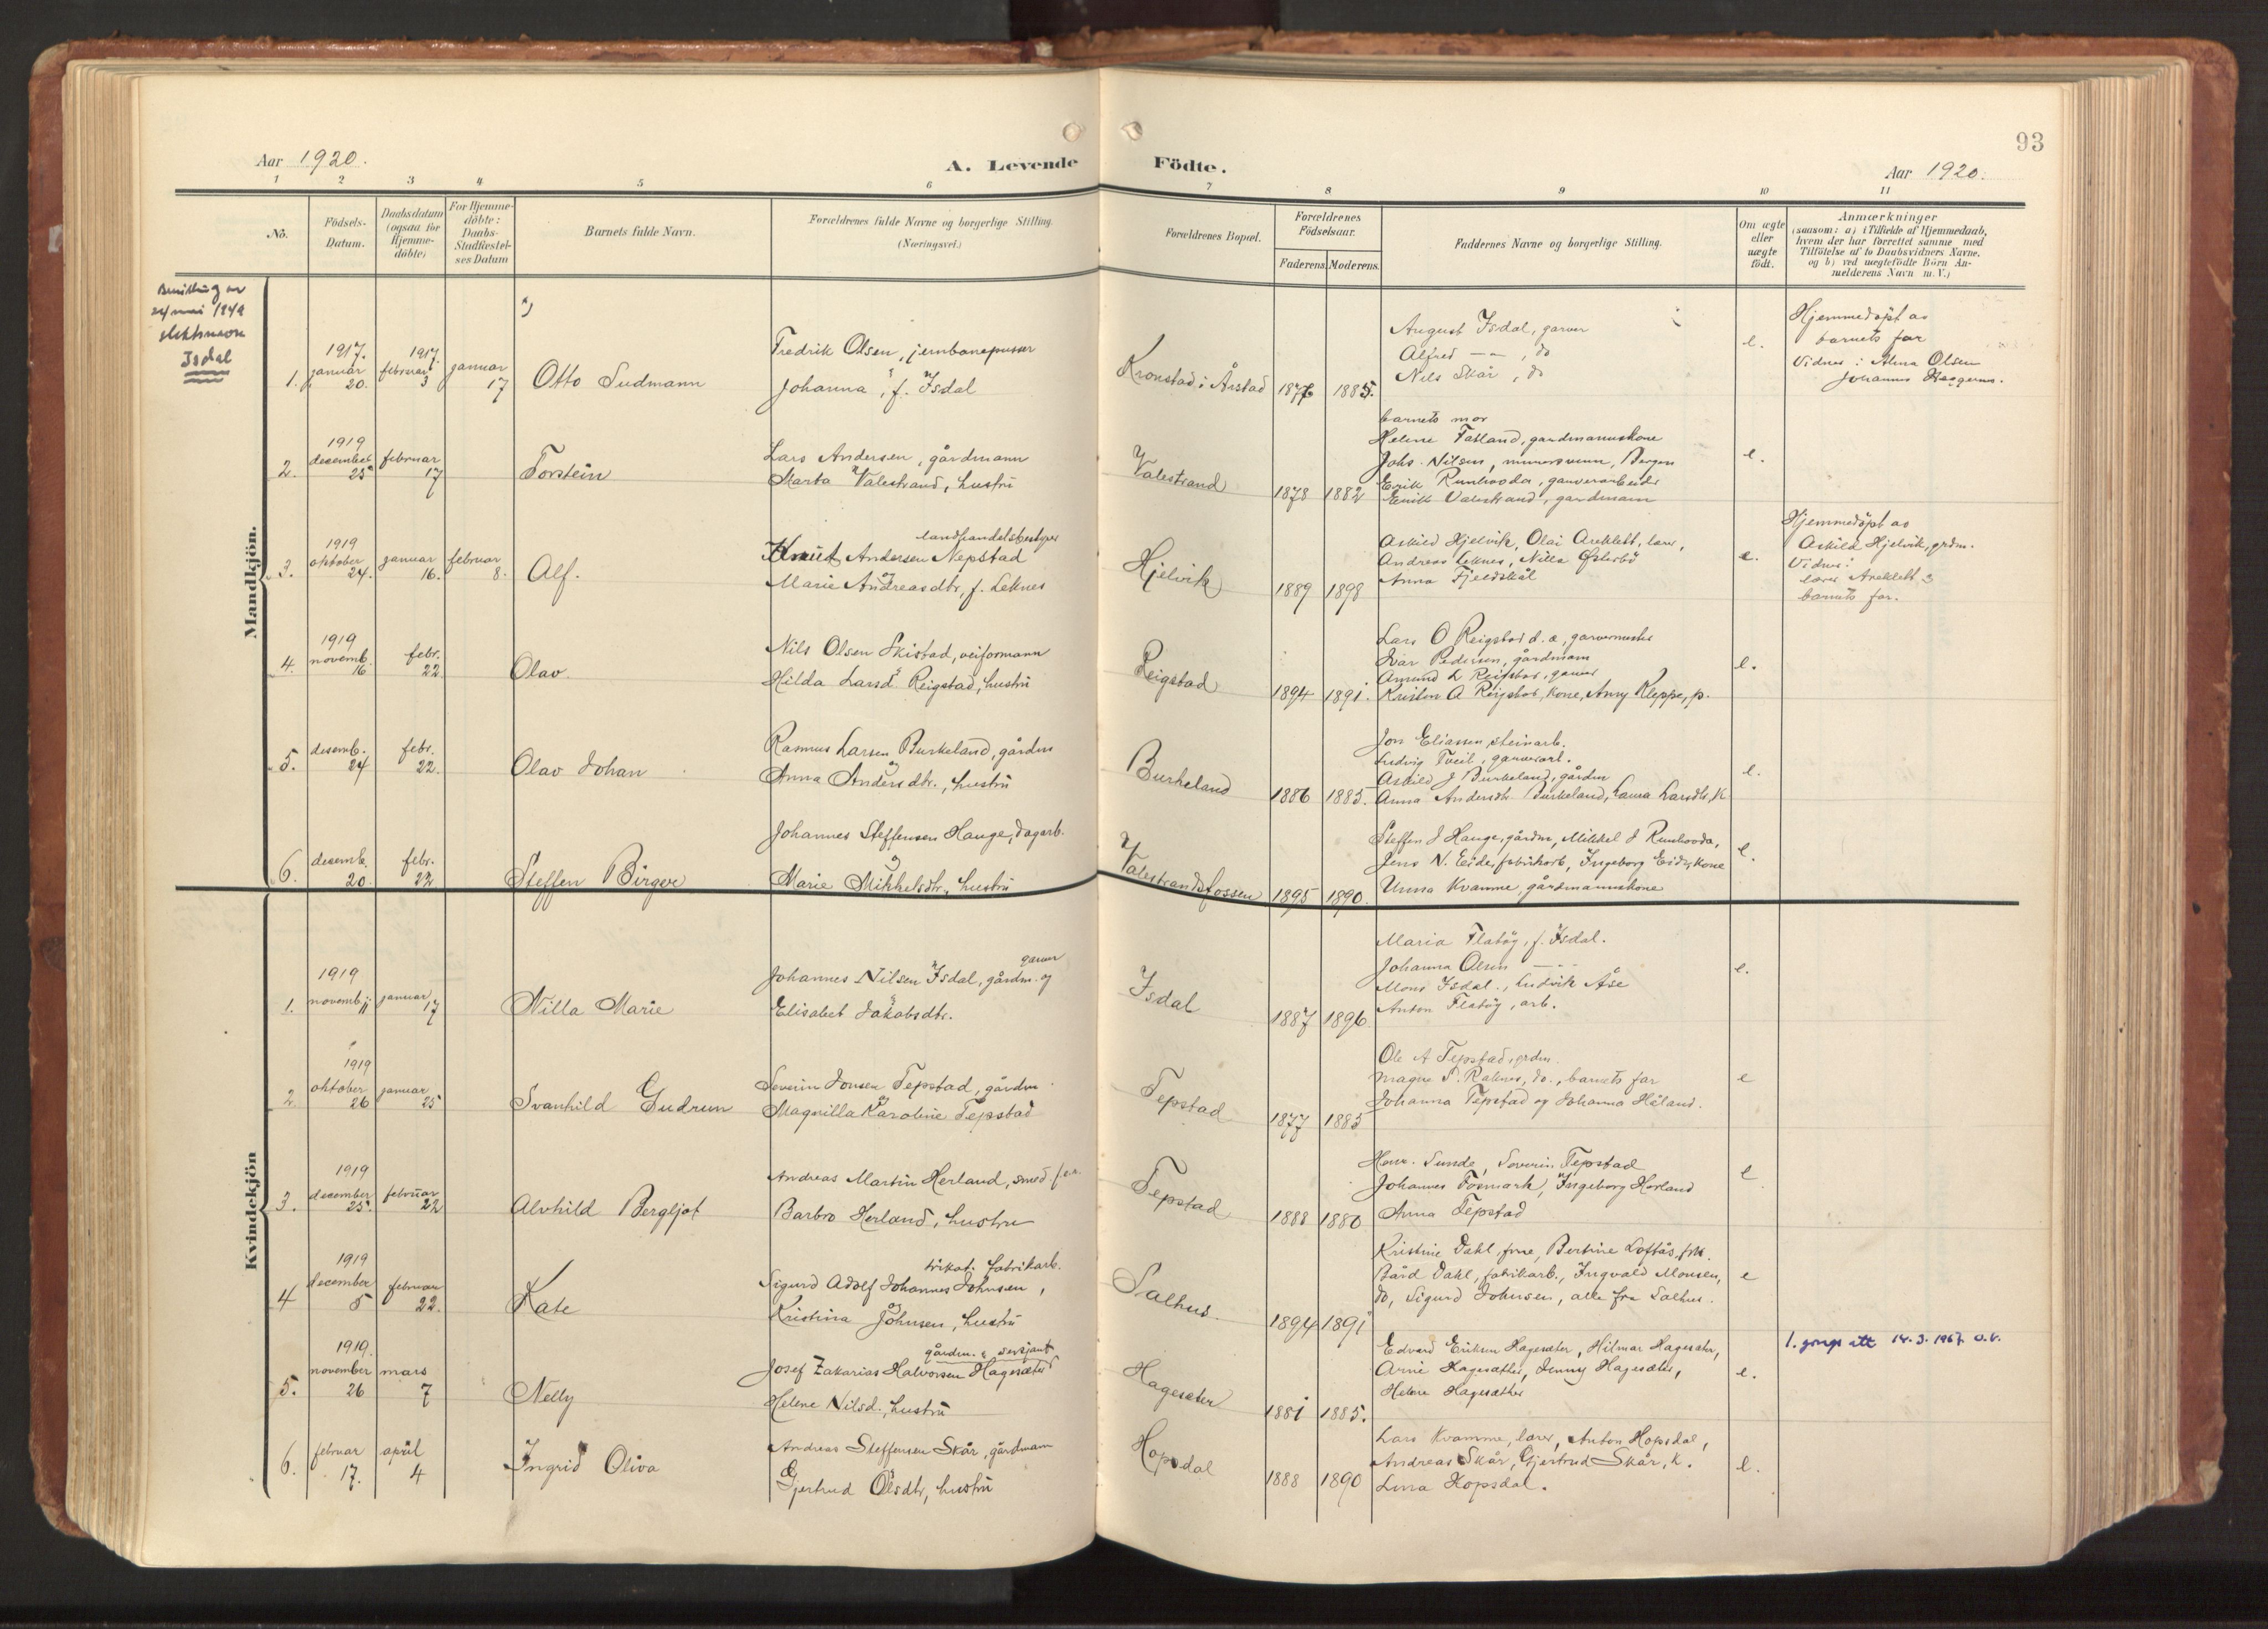 93
Aar 1920.
A. Levende Födte.
Aar 1920.
1 2 3 4 5 6 7 8 9 10 11
No.
Födsels-
Datum.
Daabsdatum
(ogsaa for
Hjemme-
döbte)
For Hjemme-
döbte:
Daabs-
Stadfæstel-
ses Datum
Barnets fulde Navn.
Forældrenes fulde Navne og borgerlige Stilling.
(Næringsvei.)
Forældrenes Bopæl.
Forældrenes
Födselsaar.
Faderens. Moderens.
Faddernes Navne og borgerlige Stilling.
Om ægte
eller
uægte
födt.
Anmærkninger
(saasom: a) i Tilfælde af Hjemmedaab,
hvem der har forrettet samme med
Tilföielse af to Daabsvidners Navne,
og b) ved uægtefödte Börn An-
melderens Navn m. V.)
Mandkjön.
24 mai 1949
slektsnavn
Isdal
1. 1917. januar 20. 1917. februar 3 januar 17
Otto Sudmann
Fredrik Olsen, jernbanepusser
Johanna, f. Isdal
Kronstad i Årstad
1876 1885.
August Isdal, garver
Alfred — " — , do
Nils Skår, do
e.
Hjemmedöpt av
barnets far
Vidner: Anna Olsen
Johannes
2. 1919 december 25 februar 17
Torstein
Lars Andersen, gårdmann
Marta Valestrand, hustru
Valestrand
1878 1882
barnets mor
Helene Fatland, gardmannskone
Johs. Nilsen, murersvenn, Bergen
Erik Runhovda, garverarbeider
Erik Valestrand, gardmann
e.
3. 1919 oktober 24. januar 16. februar 8.
Alf.
landhandelsbestyrer
Knut Andersen Nepstad
og
Marie Andreasdtr, f. Leknes
Hjelvik
1889 1898
Askild Hjelvik, Olai Areklett, lærer,
Andreas Leknes, Nilla Østerbö
Anna Fjeldskål
e.
Hjemmedöpt av
Askild Hjelvik, grdm.
Vidner:
lærer Areklett &
barnets far.
4. 1919 novemb. 16 febr. 22.
Olav.
Nils Olsen Skistad, veiformann
Hilda Larsd Reigstad, hustru
Reigstad
1894 1891.
Lars O Reigstad d. æ, garvermester
Ivar Pedersen, gårdmann
Amund L Reigstad, garver
Kristen A Reigstad, kone, Anny Kleppe, p.
e.
5. desemb. 24 febr. 22.
Olav Johan
Rasmus Larsen Burkeland, gårdm
og
Anna Andersdtr., hustru
Burkeland
1886 1885.
Jon Eliassen, steinarb.
Ludvig Tveit, garverarb.
Askild J Burkeland, gårdm
Anna Andersdtr Burkeland, Larsdtr, K
e.
6. desemb. 20. febr. 22
Steffen Birger
Johannes Steffensen Hauge, dagarb.
og
Marie Mikkelsdtr., hustru
Valestrandsfossen
1895 1890.
Steffen J Hauge, gårdm, Mikkel J Runhovda,
Jens N. Eide, fabrikarb, Ingeborg Eide, kone
Unna Kvamme, gårdmannskone
e.
Kvindekjön
1. 1919 novemb. 11 januar 17
Nilla Marie
garver
Johannes Nilsen Isdal, gårdm. og
Elisabet Jakobsdtr.
Isdal
1887 1896
Maria Flatöy, f. Isdal.
Johanna Olsen — " —
Mons Isdal., Ludvik Åse
Anton Flatöy, arb.
e.
2. 1919 oktober 26 januar 25
Svanhild Gudrun
Severin Jonsen Tepstad, gårdm.
og
Magnilla Karoline Tepstad
Tepstad
1877 1885
Ole A Tepstad, grdm.
Magne S. Raknes, do., barnets far
Johanna Tepstad og Johanna Håland.
e
3. 1919 december 25. februar 22
Alvhild Bergljot
Andreas Martin Herland, smed
Barbro Herland, hustru
Tepstad
1888 1880
Sunde, Severin Tepstad
Johannes Fosmark, Ingeborg Horland
Anna Tepstad
e
4 1919 december 5 februar 22.
Kate
trikot. fabrikarb.
Sigurd Adolf Johannes Johnsen,
og
Kristina Johnsen, hustru
Salhus.
1894 1891
Kristine Dahl, frue, Bertine Loftås, frk.
Bård Dahl, fabrikarb., Ingvald Monsen,
do, Sigurd Johnsen, alle fra Salhus.
e
5. 1919. november 26 mars 7
Nelly
gårdm. & sersjant
Josef Zakarias Halvorsen Hagesæter
Helene Nilsd., hustru
Hagesæter
1881 1885.
Edvard Eriksen Hagesæter, Hilmar Hagesæter,
Arne Hagesæther, Jenny Hagesæter,
Helene Hagesæther
e.
1. gangs att 14.3.1967 O.V.
6. februar 17. april 4
Ingrid Oliva
Andreas Steffensen Skår, gårdmann
og
Gjertrud Olsdtr, hustru
Hopsdal
1888 1890
Lars Kvamme, lærer, Anton Hopsdal,
Andreas Skår, Gjertrud Skår, k.
Lina Hopsdal.
e.